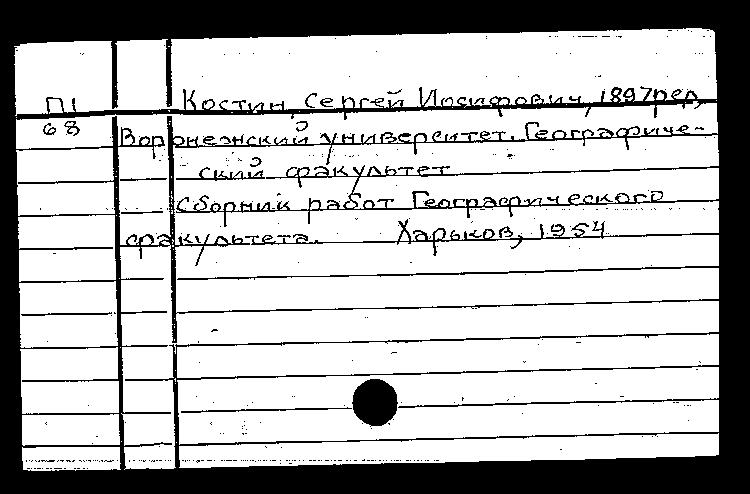 П1 Костин, Сергей Иосифович, 1897 ред,
68 Воронежский университет. Географиче-
ский факультет
Сборник работ Географического
факультета. Харьков, 1954